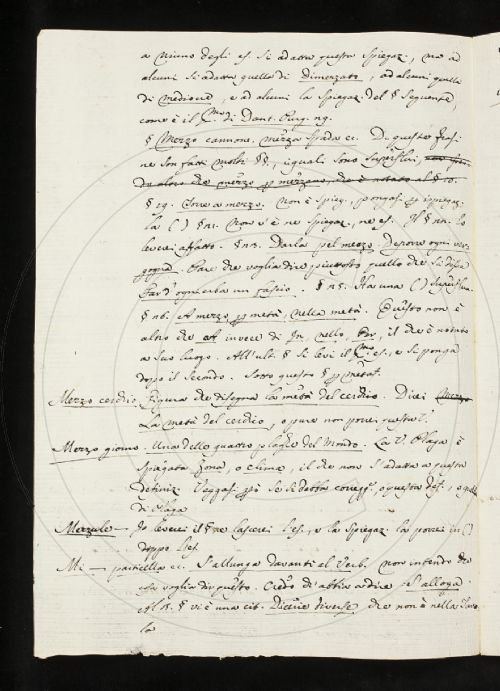 a niuno degli es. si adatta questa spiegaz., ma ad
alcuni si adatta quella di dimezzato, ad alcuni quella
di mediocre, e ad alcuni la spiegaz. del § seguente,
come è il es. di Dant. Purg. 29.
§ Mezzo cannone, mezza spada ec. Di queste frasi
ne son fatti molti §§, i quali sono superflui,
§ 29. Torre a mezzo. Non è spieg., pongasi p spiegaz.
la ( ) § 21. Non v'è ne spiegaz., ne es. Il § 22. lo
leverei affatto. § 23. Darla pel mezzo. Deporre ogni ver
gogna. Pare che voglia dire piuttosto quello che si dice
Far d'ogni erba un fascio. § 25. Ha una ( ) superflua.
§ 26. A mezzo p metà, nella metà. Questo non è
altro che A invece di In, nello, Per, il che è notato
a suo luogo. All'ult. § si levi il es., e si ponga
dopo il secondo. Sotto questo §
Mezzo cerchio. Figura che disegna la metà del cerchio. Direi
La metà del cerchio, o pure non porrei questa V.
Mezzo giorno. Una delle quattro plaghe del Mondo. La V. Plaga è
spiegata Zona, o Clima, il che non s'adatta a questa
definiz. Veggasi se si debba corregg. o questa def., o quella
di Plaga
Mezzule — Io leverei il § e lascerei l'es., e la spiegaz. la porrei in ( )
doppo l'es.
Mi — particella ec. S'allunga davanti al Verb. Non intendo che
cosa voglia dir questo. Credo ch'abbia a dire S'alloga.
Al 2. § vi è una cit. Dicerie diverse, che non è nella Tavo
la